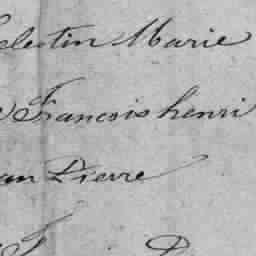 elestin Marie
Francois henri
an Pierre